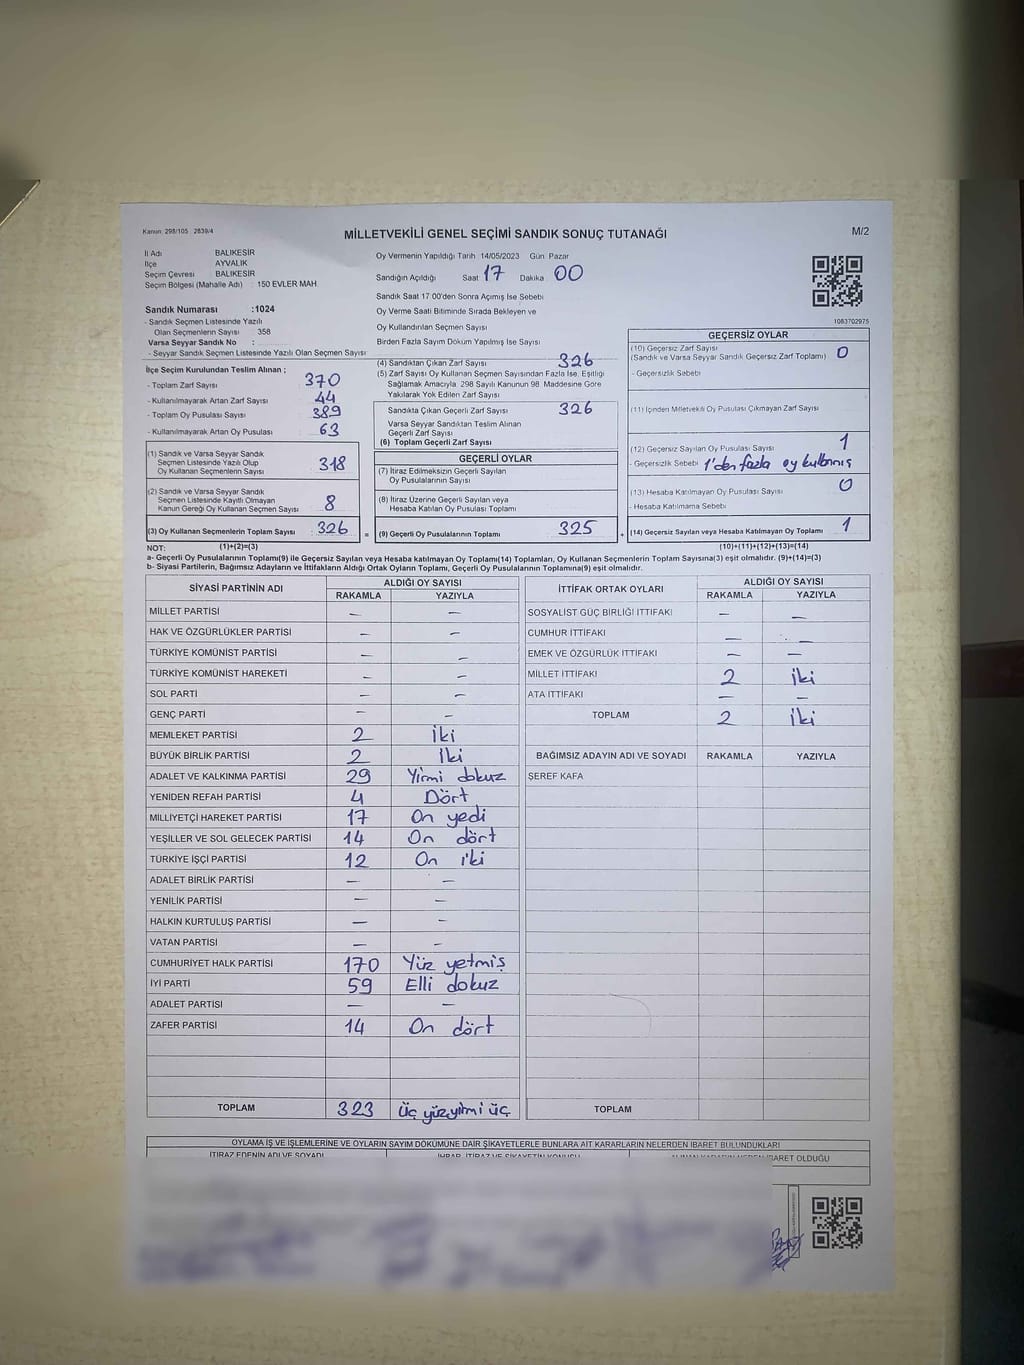 Kanun: 298/105 2839/4
MİLLETVEKİLİ GENEL SEÇİMİ SANDIK SONUÇ TUTANAĞI
M/2
İl Adı BALIKESİR
İlçe AYVALIK
Seçim Çevresi BALIKESİR
Seçim Bölgesi (Mahalle Adı) : 150 EVLER MAH.
Oy Vermenin Yapıldığı Tarih 14/05/2023 Gün Pazar
Sandığın Açıldığı Saat 17 Dakika 00
Sandık Saat 17:00'den Sonra Açımış İse Sebebi
Oy Verme Saati Bitiminde Sırada Bekleyen ve
Oy Kullandırılan Seçmen Sayısı
Birden Fazla Sayım Döküm Yapılmış İse Sayısı
1083702975
Sandık Numarası :1024
- Sandık Seçmen Listesinde Yazılı
Olan Seçmenlerin Sayısı 358
Varsa Seyyar Sandık No :
- Seyyar Sandık Seçmen Listesinde Yazılı Olan Seçmen Sayısı
İlçe Seçim Kurulundan Teslim Alınan ;
- Toplam Zarf Sayısı 370
- Kullanılmayarak Artan Zarf Sayısı 44
- Toplam Oy Pusulası Sayısı 389
- Kullanılmayarak Artan Oy Pusulası 63
(1) Sandık ve Varsa Seyyar Sandık
Seçmen Listesinde Yazılı Olup
Oy Kullanan Seçmenlerin Sayısı 318
(2) Sandık ve Varsa Seyyar Sandık
Seçmen Listesinde Kayıtlı Olmayan
Kanun Gereği Oy Kullanan Seçmen Sayısı 8
(3) Oy Kullanan Seçmenlerin Toplam Sayısı 326 =
(4) Sandıktan Çıkan Zarf Sayısı 326
(5) Zarf Sayısı Oy Kullanan Seçmen Sayısından Fazla İse, Eşitliği
Sağlamak Amacıyla, 298 Sayılı Kanunun 98. Maddesine Göre
Yakılarak Yok Edilen Zarf Sayısı
Sandıkta Çıkan Geçerli Zarf Sayısı 326
Varsa Seyyar Sandıktan Teslim Alınan
Geçerli Zarf Sayısı
(6) Toplam Geçerli Zarf Sayısı
GEÇERLİ OYLAR
(7) İtiraz Edilmeksizin Geçerli Sayılan
Oy Pusulalarının Sayısı
(8) İtiraz Üzerine Geçerli Sayılan veya
Hesaba Katılan Oy Pusulası Toplamı
(9) Geçerli Oy Pusulalarının Toplamı 325 +
GEÇERSİZ OYLAR
(10) Geçersiz Zarf Sayısı
(Sandık ve Varsa Seyyar Sandık Geçersiz Zarf Toplamı) 0
- Geçersizlik Sebebi
(11) İçinden Milletvekili Oy Pusulası Çıkmayan Zarf Sayısı
(12) Geçersiz Sayılan Oy Pusulası Sayısı 1
- Geçersizlik Sebebi 1'den fazla oy kullanmış
(13) Hesaba Katılmayan Oy Pusulası Sayısı 0
- Hesaba Katılmama Sebebi
(14) Geçersiz Sayılan veya Hesaba Katılmayan Oy Toplamı 1
NOT: (1)+(2)=(3) (10)+(11)+(12)+(13)=(14)
a- Geçerli Oy Pusulalarının Toplamı(9) ile Geçersiz Sayılan veya Hesaba katılmayan Oy Toplamı(14) Toplamları, Oy Kullanan Seçmenlerin Toplam Sayısına(3) eşit olmalıdır. (9)+(14)=(3)
b- Siyasi Partilerin, Bağımsız Adayların ve İttifakların Aldığı Ortak Oyların Toplamı, Geçerli Oy Pusulalarının Toplamına(9) eşit olmalıdır.
SİYASİ PARTİNİN ADI ALDIĞI OY SAYISI
RAKAMLA YAZIYLA
MİLLET PARTİSİ — —
HAK VE ÖZGÜRLÜKLER PARTİSİ — —
TÜRKİYE KOMÜNİST PARTİSİ — —
TÜRKİYE KOMÜNİST HAREKETİ — —
SOL PARTİ — —
GENÇ PARTİ — —
MEMLEKET PARTİSİ 2 iki
BÜYÜK BİRLİK PARTİSİ 2 iki
ADALET VE KALKINMA PARTİSİ 29 Yirmi dokuz
YENİDEN REFAH PARTİSİ 4 Dört
MİLLİYETÇİ HAREKET PARTİSİ 17 On yedi
YEŞİLLER VE SOL GELECEK PARTİSİ 14 On dört
TÜRKİYE İŞÇİ PARTİSİ 12 On iki
ADALET BİRLİK PARTİSİ — —
YENİLİK PARTİSİ — —
HALKIN KURTULUŞ PARTİSİ — —
VATAN PARTİSİ — —
CUMHURİYET HALK PARTİSİ 170 Yüz yetmiş
İYİ PARTİ 59 Elli dokuz
ADALET PARTİSİ — —
ZAFER PARTİSİ 14 On dört
TOPLAM 323 üç yüzyirmi üç
İTTİFAK ORTAK OYLARI ALDIĞI OY SAYISI
RAKAMLA YAZIYLA
SOSYALİST GÜÇ BİRLİĞİ İTTİFAKI — —
CUMHUR İTTİFAKI — —
EMEK VE ÖZGÜRLÜK İTTİFAKI — —
MİLLET İTTİFAKI 2 iki
ATA İTTİFAKI — —
TOPLAM 2 iki
BAĞIMSIZ ADAYIN ADI VE SOYADI RAKAMLA YAZIYLA
ŞEREF KAFA
TOPLAM
OYLAMA İŞ VE İŞLEMLERİNE VE OYLARIN SAYIM DÖKÜMÜNE DAİR ŞİKAYETLERLE BUNLARA AİT KARARLARIN NELERDEN İBARET BULUNDUKLARI
İTİRAZ EDENİN ADI VE SOYADI İHBAR, İTİRAZ VE ŞİKAYETİN KONUSU İBARET OLDUĞU